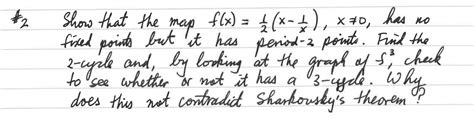 #2 Show that the map f(x) = ½(x - 1/x), x ≠ 0, has no
fixed points but it has period-2 points. Find the
2-cycle and, by looking at the graph of f³, check
to see whether or not it has a 3-cycle. Why
does this not contradict Sharkovsky's theorem?